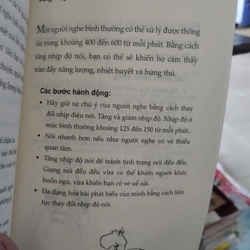 Một người nghe bình thường có thể xử lý được thông
tin trong khoảng 400 đến 600 từ mỗi phút. Bằng cách
tăng nhịp độ nói, bạn sẽ khiến họ cảm thấy
tràn đầy năng lượng, nhiệt huyết và hứng thú.
Các bước hành động:
• Hãy giữ sự chú ý của người nghe bằng cách thay
đổi nhịp điệu nói. Tăng và giảm nhịp độ. Nhịp độ ở
mức bình thường khoảng 125 đến 150 từ mỗi phút.
• Nói nhanh hơn nếu như người nghe có vẻ thiếu
quan tâm.
• Tăng nhịp độ nói để tránh tình trạng nói đều đều.
Giọng nói đều đều vừa có thể khiến người khác
buồn ngủ, vừa khiến bạn có vẻ uể oải.
• Đa dạng hóa bài phát biểu của mình bằng cách liên
tục thay đổi nhịp độ nói.